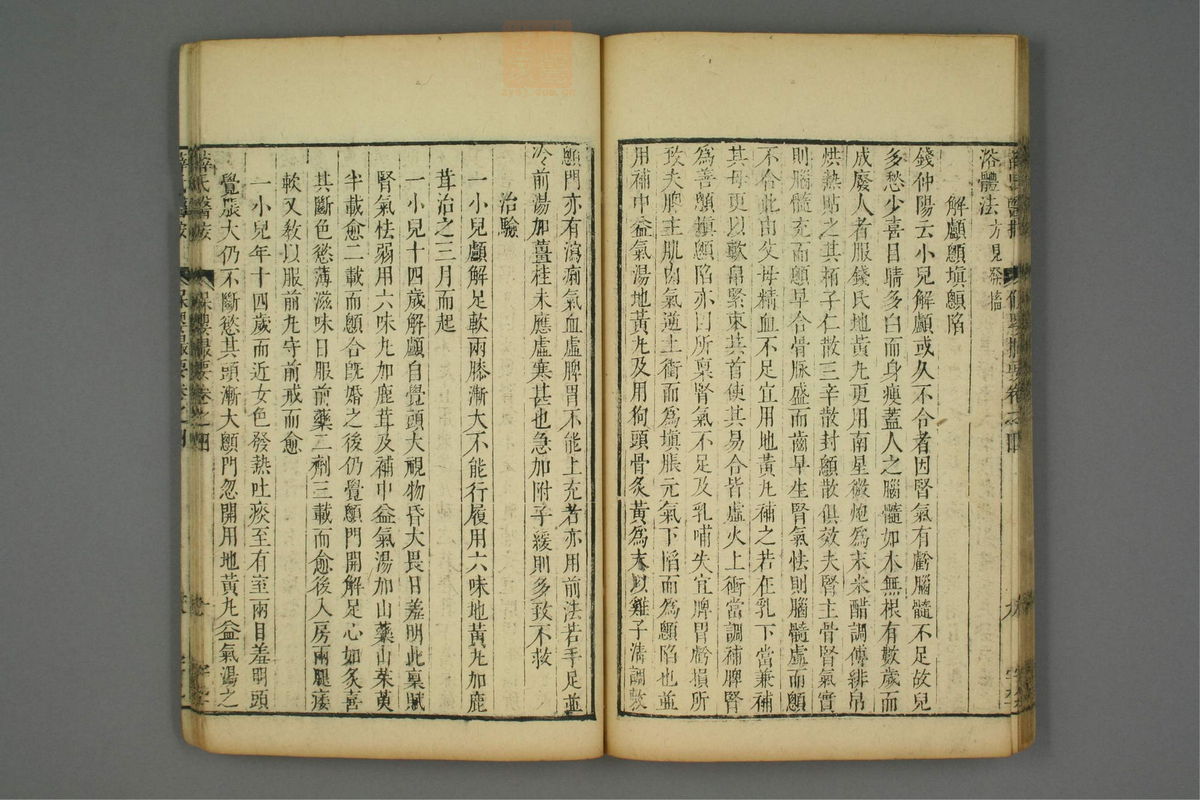 浴體法方見發搐
解顱顖塡顖陷
錢仲陽云小兒解顱或久不合者因腎氣有虧腦髓不足故兒
多愁少喜目睛多白而身瘦蓋人之腦髓如木無根有數歲而
成廢人者服錢氏地黃丸更用南星微炮爲末米醋調傅緋帛
烘熱貼之其柏子仁散三辛散封顖散俱效夫腎主骨腎氣實
則腦髓充而顖早合骨脉盛而齒早生腎氣怯則腦髓虛而顖
不合此由父母精血不足宜用地黃丸補之若在乳下當兼補
其母更以軟帛緊束其首使其易合皆虛火上衝當調補脾腎
爲善顖塡顖陷亦因所稟腎氣不足及乳哺失宜脾胃虧損所
致夫脾主肌肉氣逆上衝而爲塡脹元氣下陷而爲顖陷也並
用補中益氣湯地黃丸及用狗頭骨炙黃爲末以雞子淸調敷
顖門亦有瀉痢氣血虛脾胃不能上充若亦用前法若手足並
冷前湯加薑桂未應虛寒甚也急加附子緩則多致不救
治驗
一小兒顱解足軟兩膝漸大不能行履用六味地黃丸加鹿
茸治之三月而起
一小兒十四歲解顱自覺頭大視物昏大畏日羞明此稟賦
腎氣怯弱用六味丸加鹿茸及補中益氣湯加山藥山茱萸
半載愈二載而顖合旣婚之後仍覺顖門開解足心如炙喜
其斷色慾薄滋味日服前藥二劑三載而愈後入房兩腿痿
軟又敎以服前丸守前戒而愈
一小兒年十四歲而近女色發熱吐痰至有室兩目羞明頭
覺脹大仍不斷慾其頭漸大顖門忽開用地黃丸益氣湯之
薛氏醫按 保嬰撮要卷之四